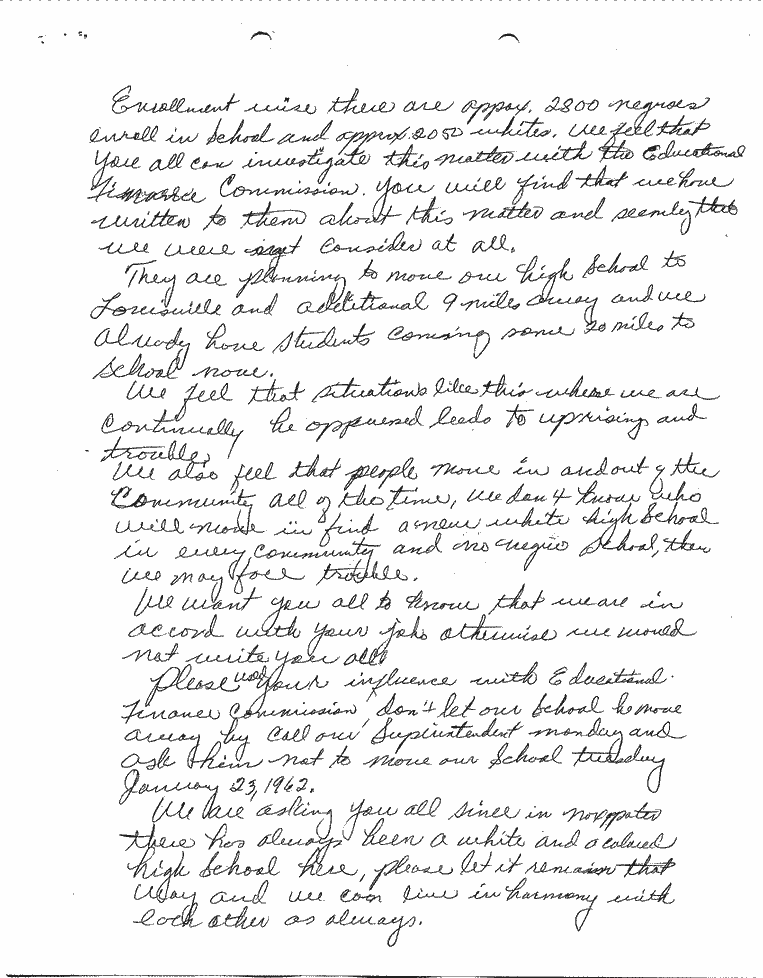 Enrollment wise there are appox. 2800 negroes
enroll in School and approx. 2050 whites. We feel that
you all can investigate this matter with the Educational
Finance Commission. You will find that we have
written to them about this matter and seemly that
we were not consider at all.
They are planning to move our high School to
Louisville and additional 9 miles away and we
already have students coming some 20 miles to
School now.
We feel that situations like this where we are
continually be oppuesed leads to uprising and
trouble.
We also feel that people move in and out of the
Community all of the time, we don't know who
will move in find a new white high School
in every community and no negro School, then
we may face trouble.
We want you all to know that we are in
accord with your job otherwise we would
not write you all.
Please use your influence with Educational
Finance Commission, don't let our School be move
away by call our Superintendent monday and
ask them not to move our School tuesday
January 23, 1962.
We are asking you all since in noxppater
there has always been a white and a colored
high School here, please let it remain that
way and we can live in harmony with
each other as always.